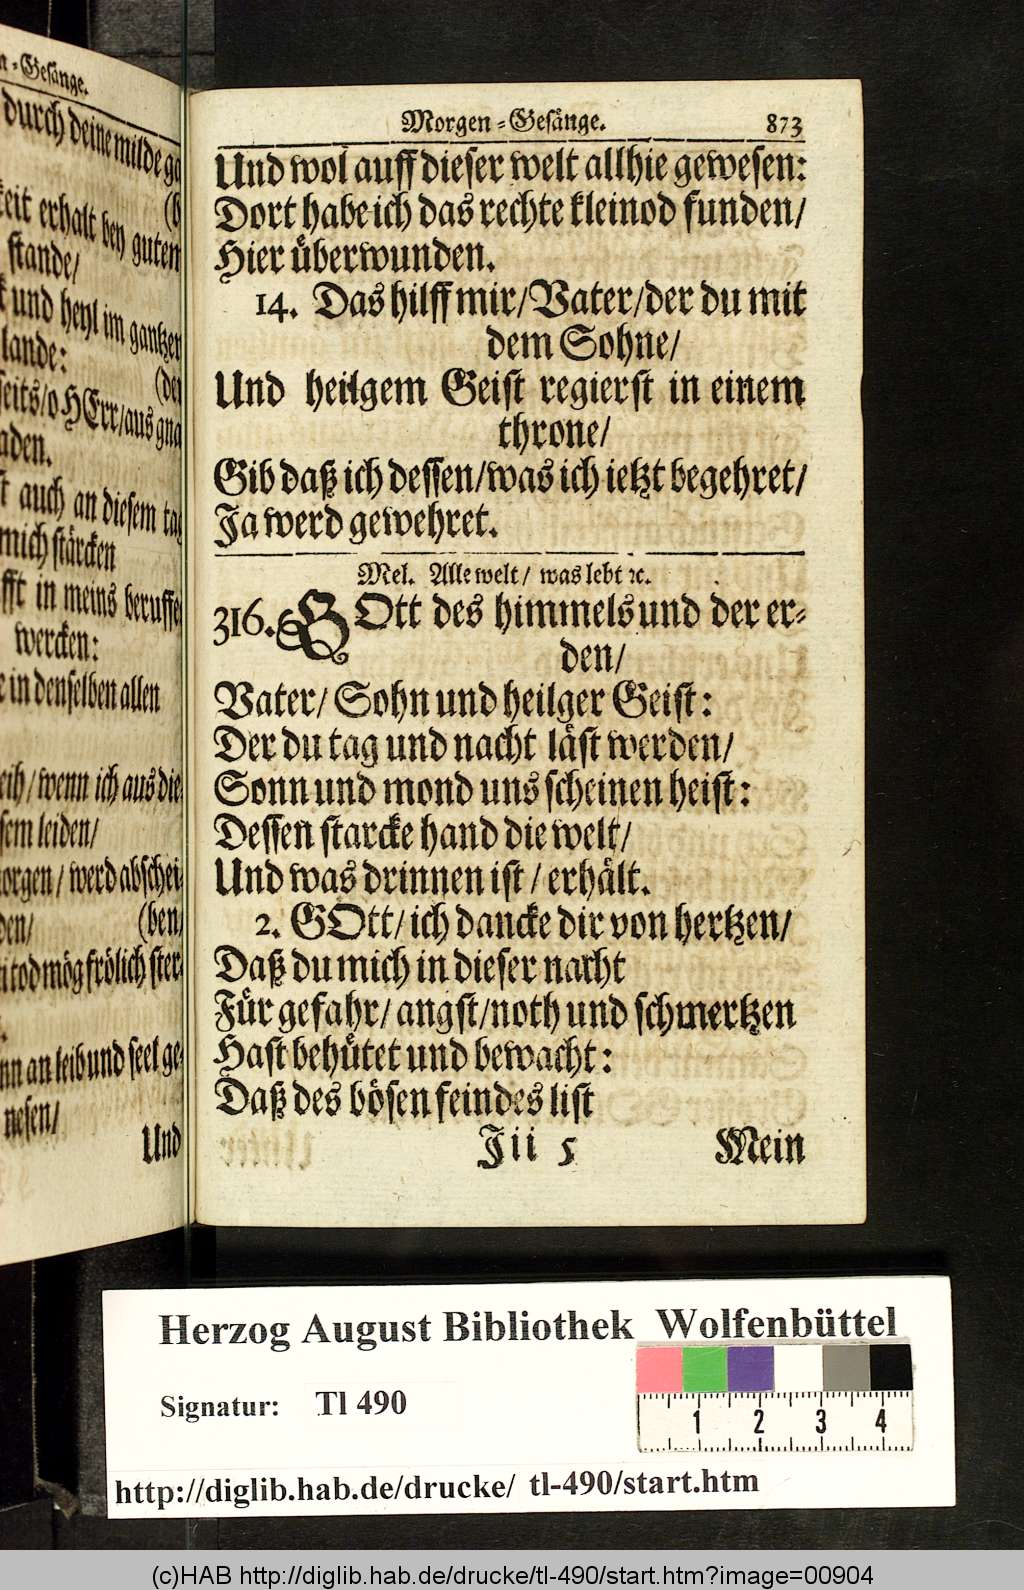 n-Gesänge.
durch deine milde
keit erhalt bey gutem
stande/
und heyl im gantzen
lande:
seits/o HErr/aus gna
aden.
auch an diesem
mich stärcken
in meins beruffe
wercken:
in denselben allen
wenn ich aus die
sem leiden/
orgen/werd abschei
den/ (ben/
tod mög frölich ster
nn an leib und seel ge
nesen/
Und
Morgen-Gesänge. 873
Und wol auff dieser welt allhie gewesen:
Dort habe ich das rechte kleinod funden/
Hier überwunden.
14. Das hilff mir/Vater/der du mit
dem Sohne/
Und heilgem Geist regierst in einem
throne/
Gib daß ich dessen/was ich ietzt begehret/
Ja werd gewehret.
Mel. Alle welt/ was lebt ꝛc.
316. GOtt des himmels und der er-
den/
Vater/ Sohn und heilger Geist:
Der du tag und nacht läst werden/
Sonn und mond uns scheinen heist:
Dessen starcke hand die welt/
Und was drinnen ist/ erhält.
2. GOtt/ ich dancke dir von hertzen/
Daß du mich in dieser nacht
Für gefahr/ angst/noth und schmertzen
Hast behütet und bewacht:
Daß des bösen feindes list
Jii 5 Mein
Herzog August Bibliothek Wolfenbüttel
Signatur: Tl 490
1 2 3 4
http://diglib.hab.de/drucke/ tl-490/start.htm
(c)HAB http://diglib.hab.de/drucke/tl-490/start.htm?image=00904